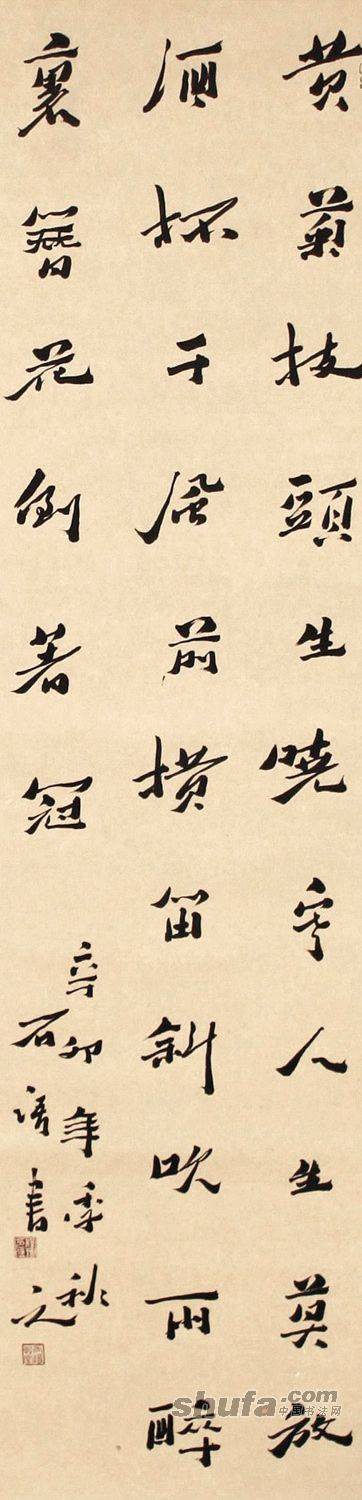 黄菊枝頭生曉寒人生莫放
酒杯干風前横笛斜吹雨醉
裏簪花倒著冠
辛卯年季秋之
石書
shufa.com
中国书法网